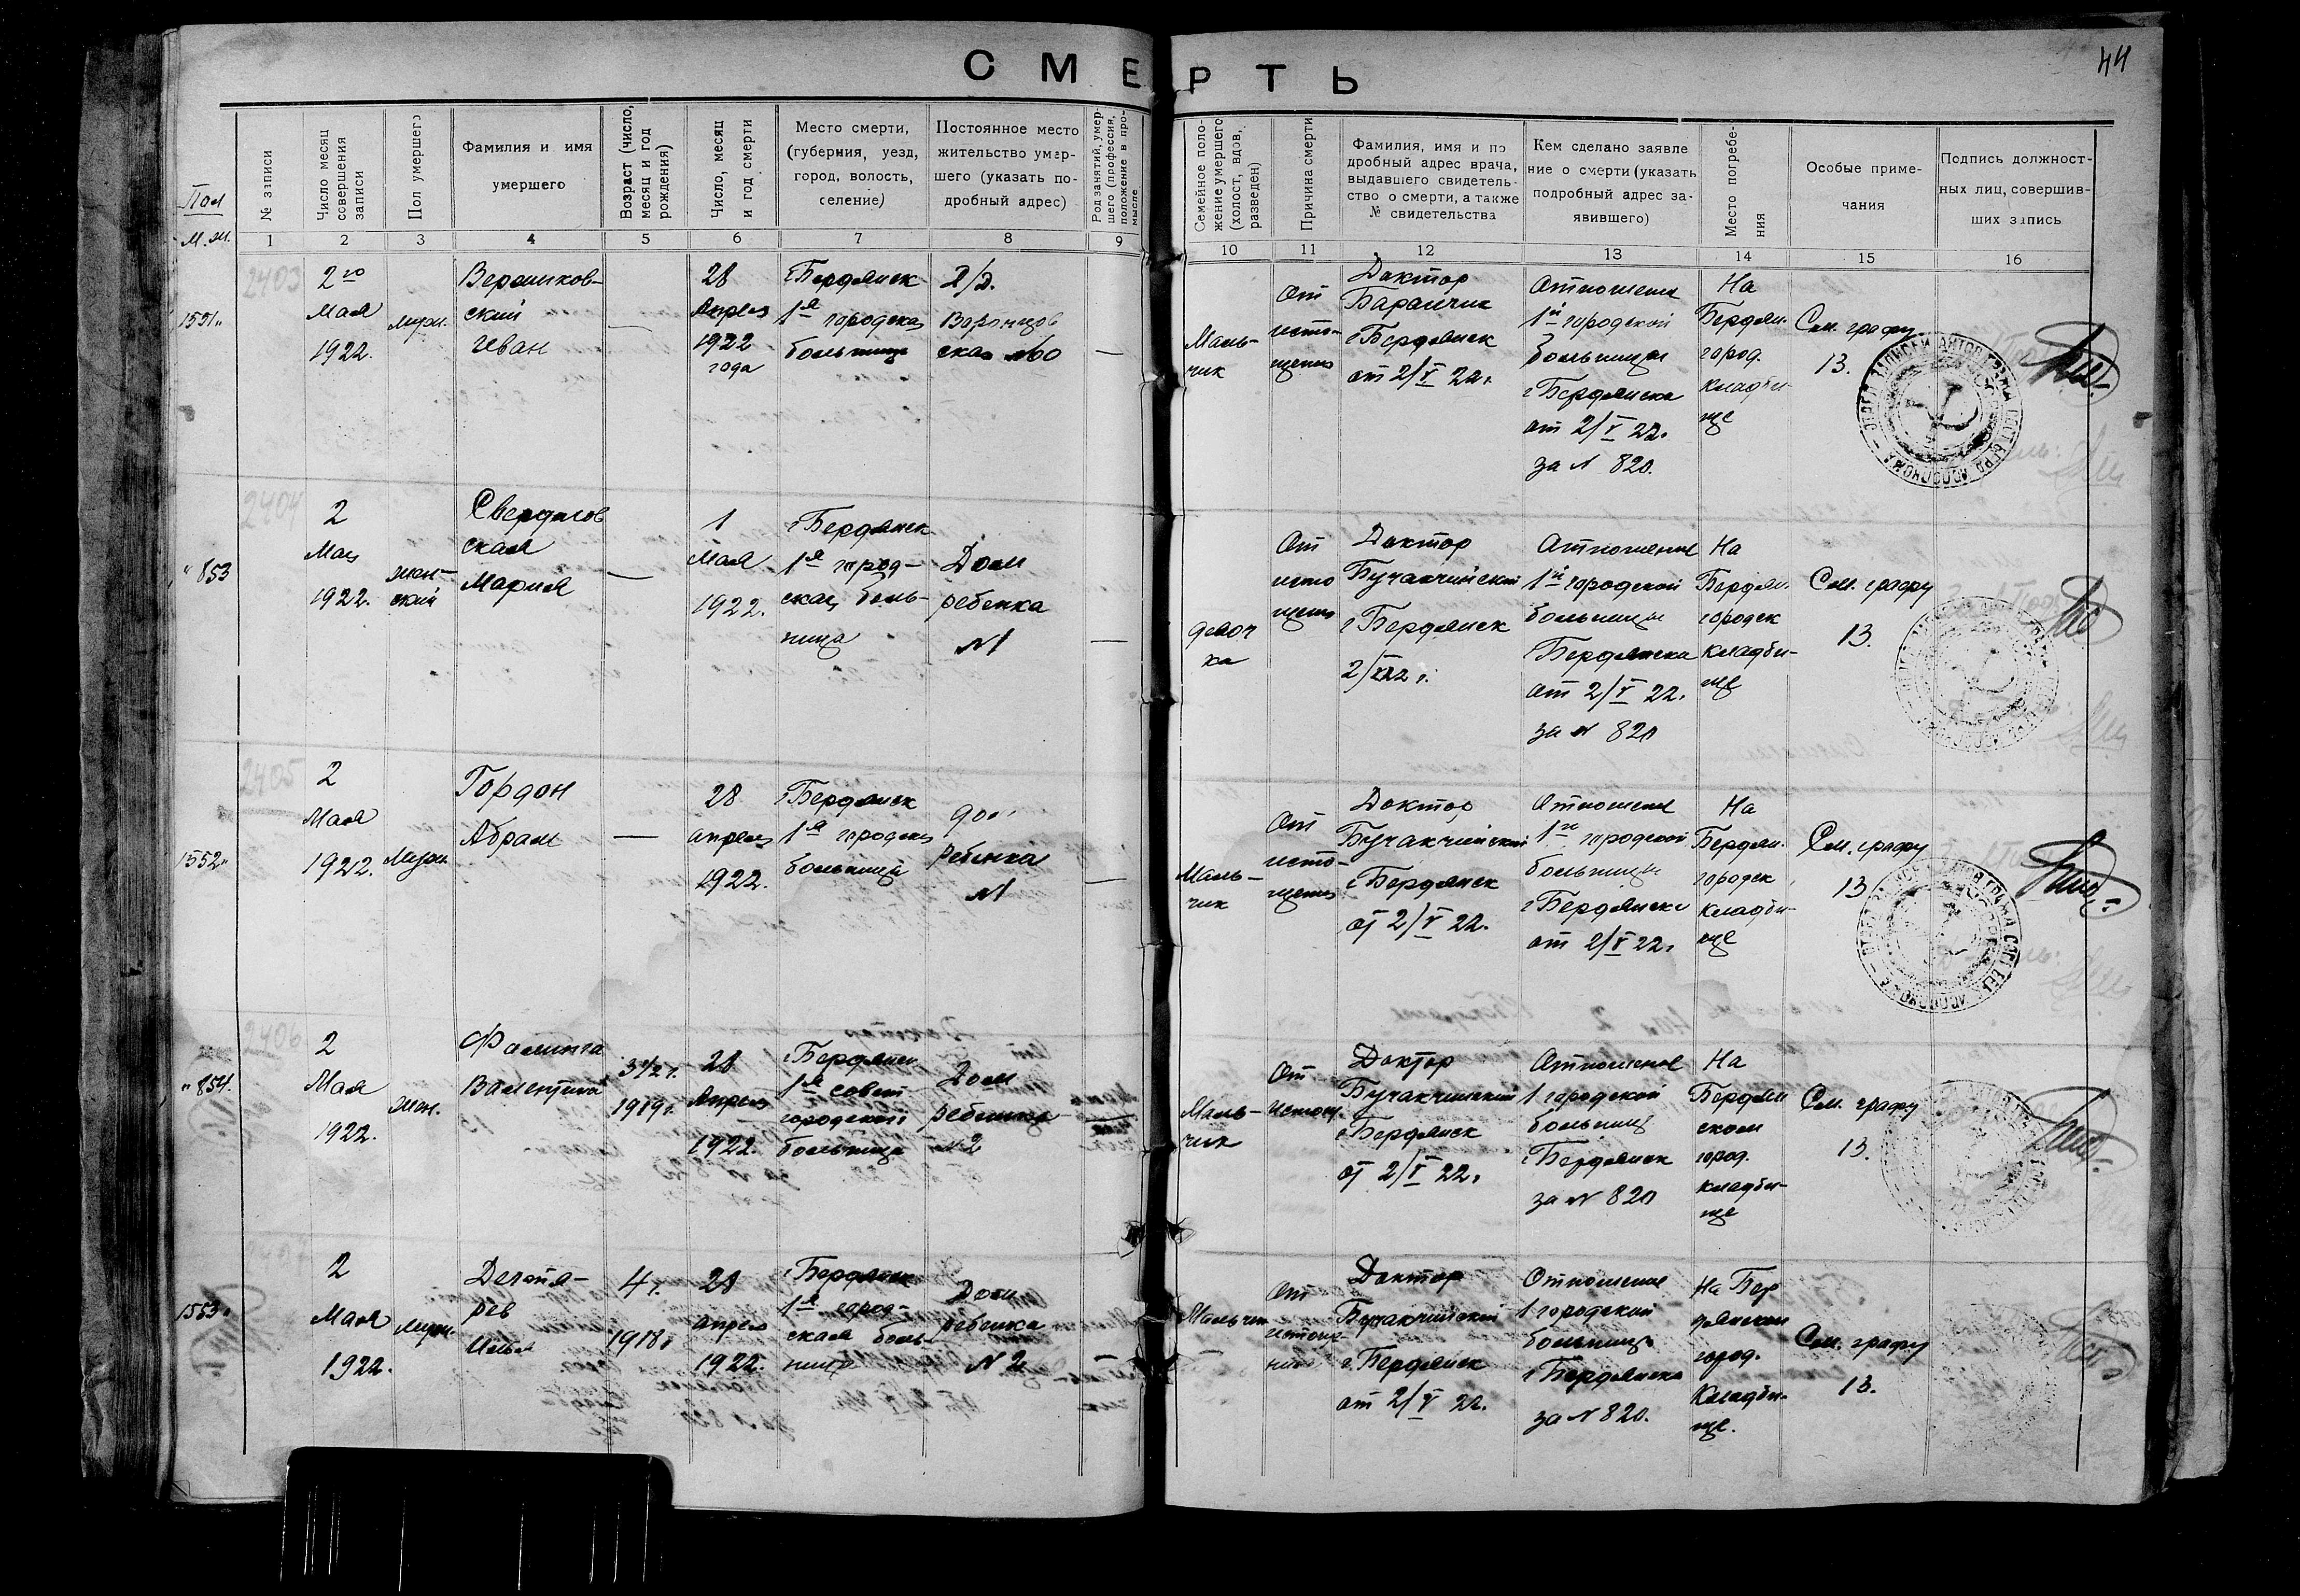 СМЕРТЬ
44
Пол
М. Ж.
№ записи
Число месяц совершения записи
Пол умершего
Фамилия и имя умершего
Возраст (число, месяц и год рождения)
Число, месяц и год смерти
Место смерти, (губерния, уезд, город, волость, селение)
Постоянное место жительство умершего (указать подробный адрес)
Род занятий, умершего (профессия, положение в промысле
Семейное положение умершего (холост, вдов, разведен)
Причина смерти
Фамилия, имя и по дробный адрес врача, выдавшего свидетельство о смерти, а также № свидетельства
Кем сделано заявление о смерти (указать подробный адрес заявившего)
Место погребения
Особые примечания
Подпись должностных лиц, совершивших запись
1 2 3 4 5 6 7 8 9 10 11 12 13 14 15 16
2403
1551
2го
Мая
1922.
муж.
ский
Иван
—
28
Апреля
1922
года
г Бердянск
1я городская
больница
Воронцов
ская №60
—
Маль-
чик
От
исто-
щения
Доктор
г Бердянск
от 2/V 22 г
Отношения
1й городской
больницы
г Бердянска
от 2/V 22 г
за N 820.
На
Бердян.
город.
кладби-
ще
См. графу
13.
2404
853
2
Мая
1922.
жен-
ский
Свердлов
ская
Мария
—
1
Мая
1922.
г Бердянск
1я город-
ская боль-
ница
Дом
ребенка
N1
—
девоч
ка
От
исто
щения
Доктор
Бучакчийский
г Бердянск
Отношение
1й городской
больницы
Бердянска
от 2/V 22 г
за N 820
На
Бердян.
городск
кладби-
ще
См. графу
13.
2405
1552
2
Мая
1922.
Муж
Гордон
Абрам
—
28
апреля
1922.
г Бердянск
1я городская
больница
ребенка
N1
—
Маль-
чик
От
исто-
щения
Доктор
Бучакчийский
г Бердянск
от 2/V 22 г.
Отношение
1й городской
больницы
г Бердянска
от 2/V 22 г
На
Бердян.
городск
кладби-
ще
См. графу
13
2406
854
2
Мая
1922.
жен.
Валентина
3 1/2 г.
1919 г
28
Апреля
1922.
г Бердянск
1я совет
городской
больница
Дом
ребенка
N2
—
Маль-
чик
От
истощ.
Доктор
Бучакчийский
г Бердянск
от 2/V 22 г
Отношение
1 городской
больницы
г Бердянск
за N 820
На
Бердян
ском
город.
кладби-
ще
См. графу
13.
1553
2
Мая
1922.
муж.
Дегтя-
рев
Илья
4 г.
1918 г
28
апреля
1922.
г Бердянск
1я город-
ская боль-
ница
Дом
ребенка
N 2
—
Мальчик
От
истоще
ния
Доктор
Бучакчийский
г. Бердянск
от 2/V 22.
Отношение
1 городской
больницы
г Бердянска
за N 820.
На Бер
дянском
город.
Кладби-
ще.
См. графу
13.